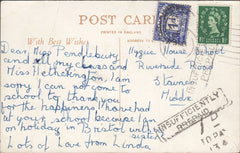 POST CARD
PRINTED IN ENGLAND
With Best Wishes
Dear Miss Pendlebury
and all my chums and
Miss Hetherington, I am
sorry I can not come to
school to thank you
for the happiness I have had
at your school because I am
on holiday in Bristol
Lots of Love from Linda
House School
Riverside Road
Staines
Middx
INSUFFICIENTLY
PREPAID
TO PAY